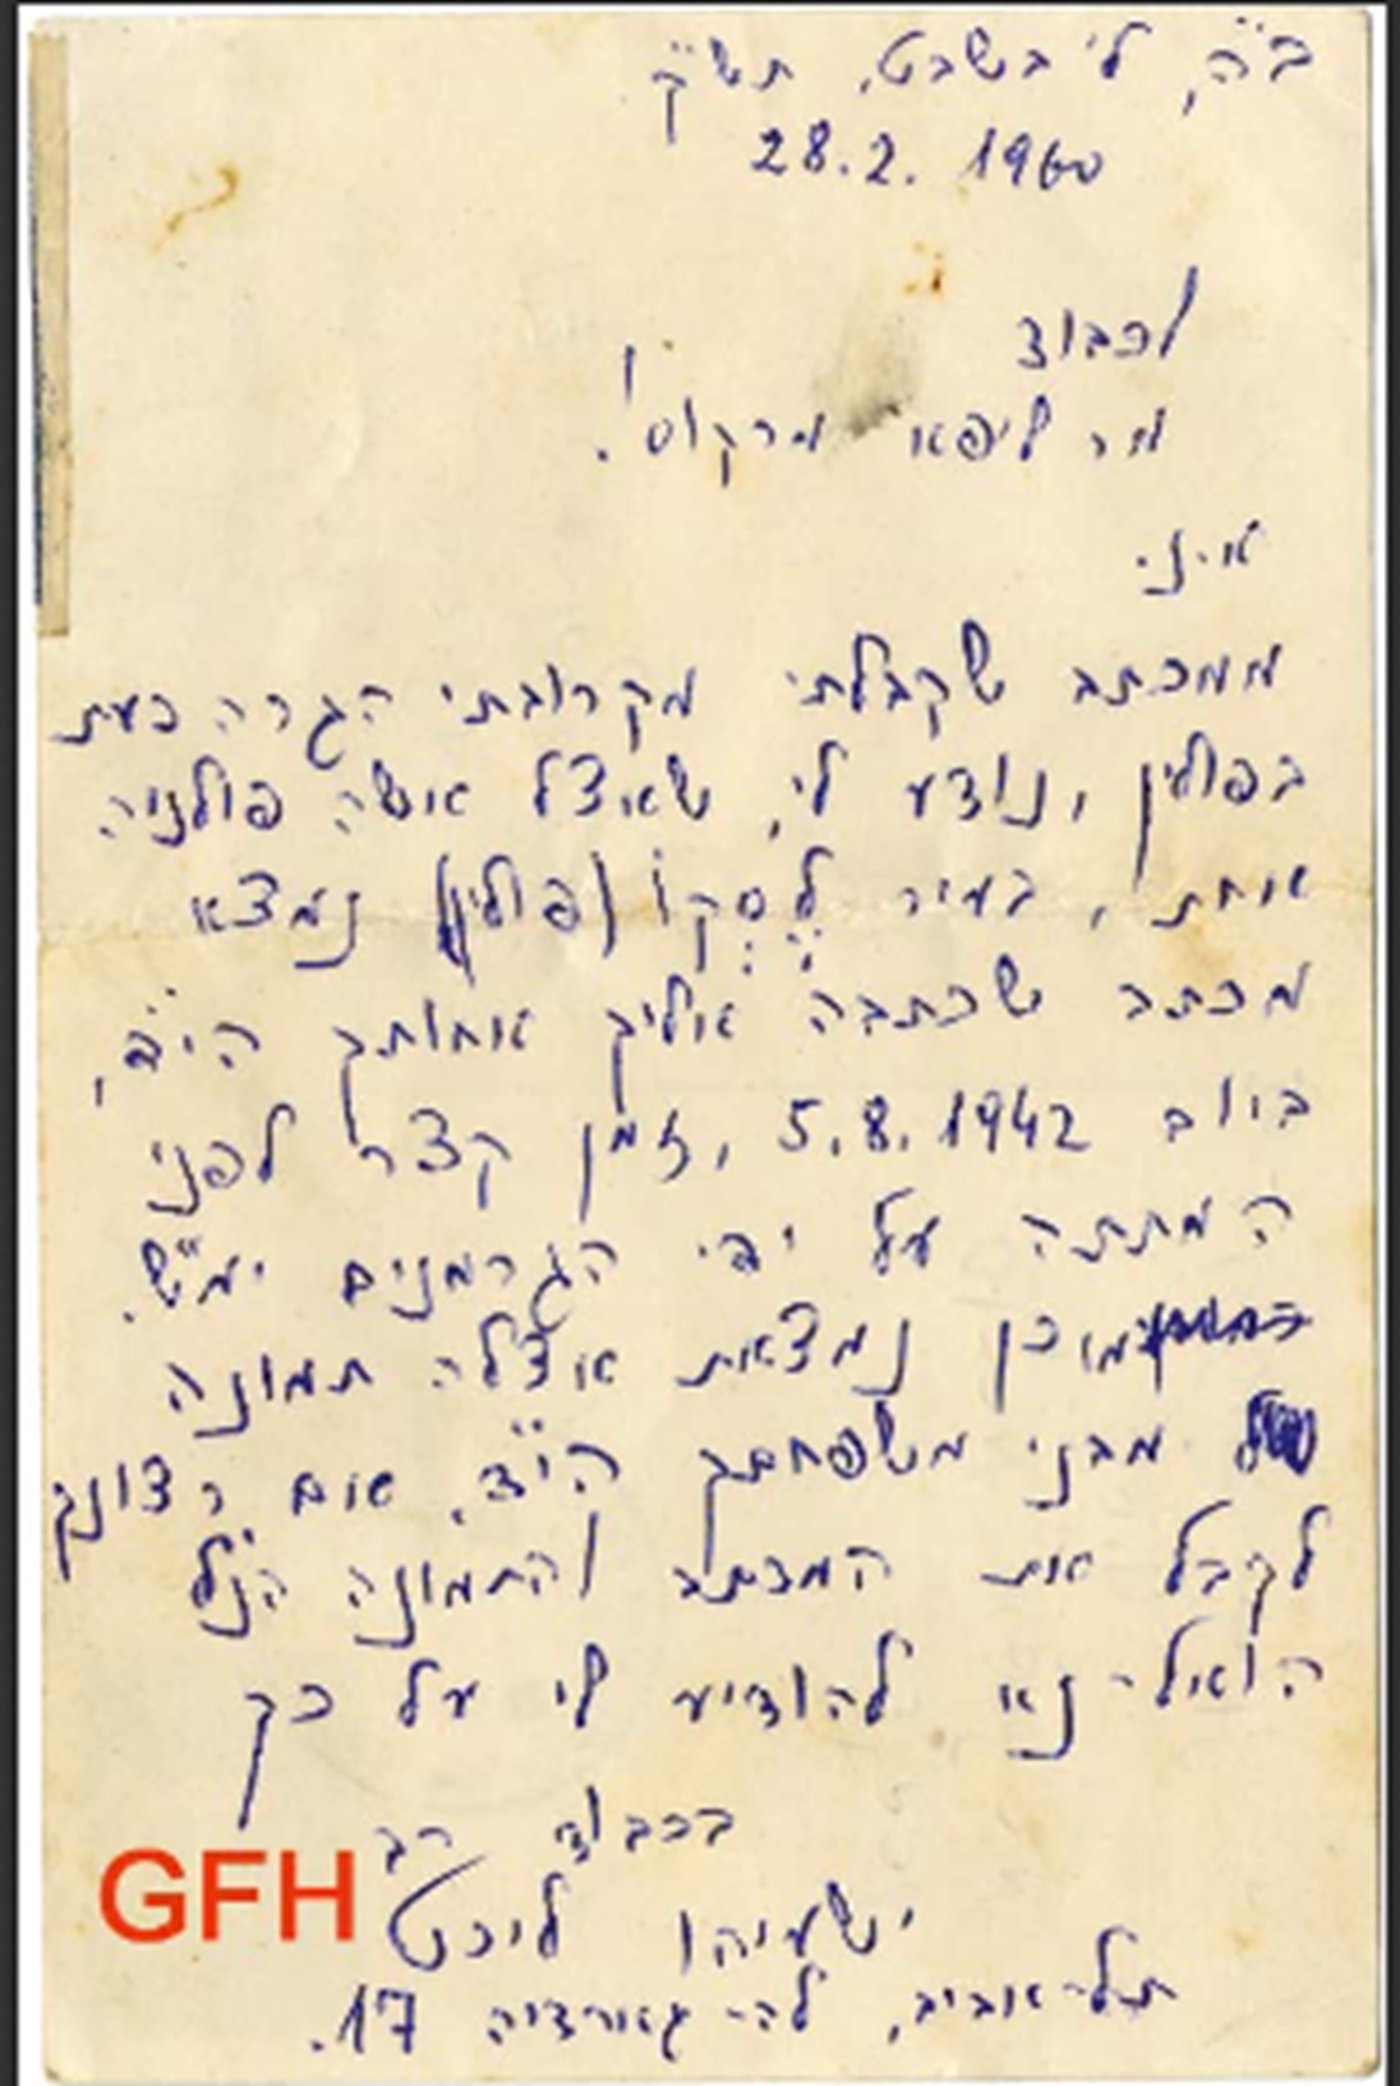 ב"ה, ל' בשבט, תש"ך
28.2.1960
לכבוד
מר ליפא מרקוס!
א.נ.
ממכתב שקבלתי מקרובתי הגרה כעת
בפולין, נודע לי, שאצל אשה פולניה
אחת, בעיר לֶסְקוֹ (פולין) נמצא
מכתב שכתבה אליך אחותך הי"ד,
ביום 5.8.1942, זמן קצר לפני
המתתה על ידי הגרמנים ימ"ש.
כמו כן נמצאת אצלה תמונה
מבני משפחתך הי"ד. אם רצונך
לקבל את המכתב והתמונה הנ"ל
הואיל-נא להודיע לי על כך
בכבוד רב
ישעיהו ליכט
תל-אביב, לה-גארדיה 17.
GFH